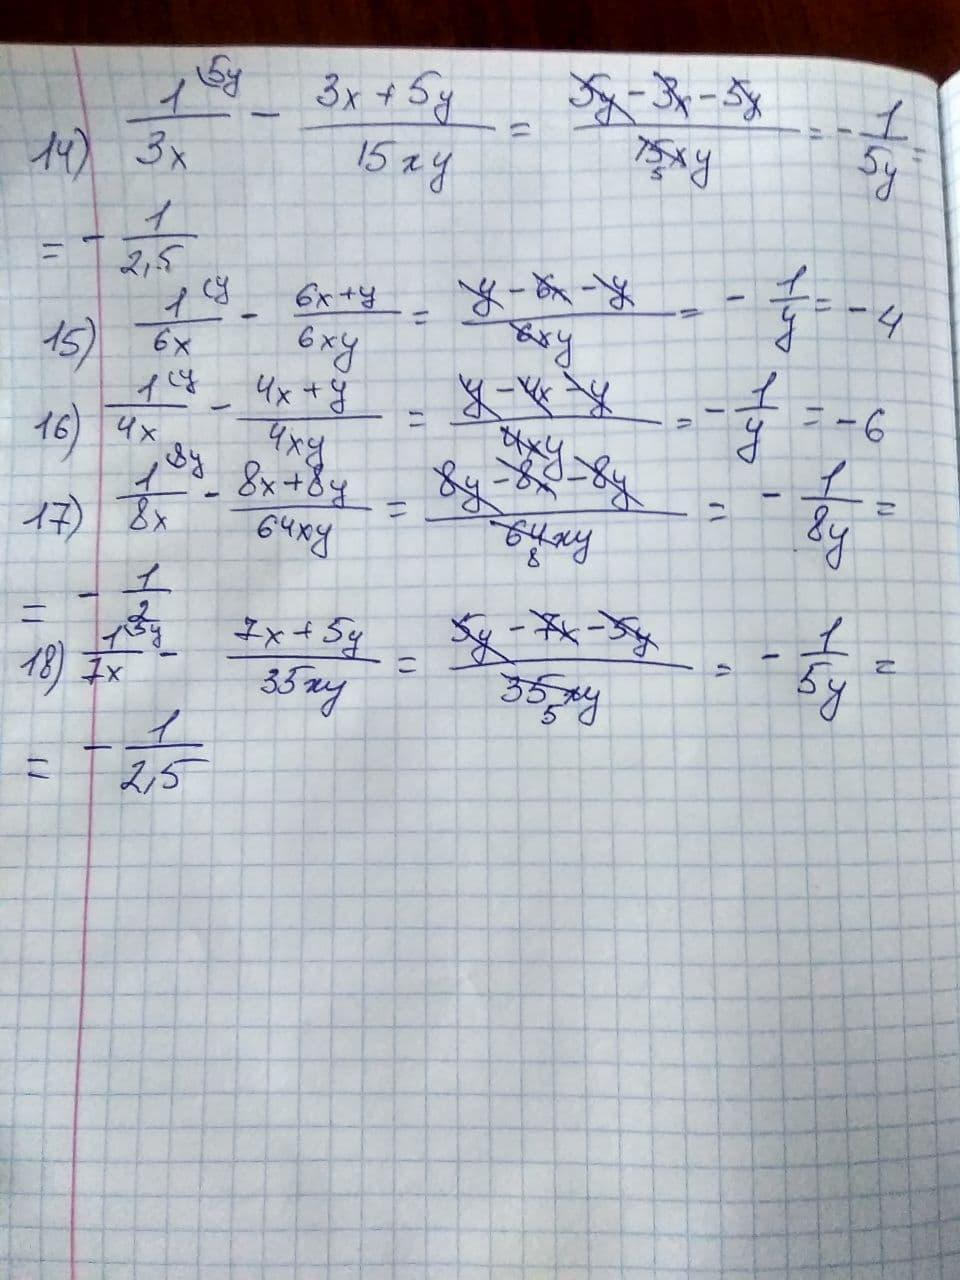 14) 1/3x (5y - 3x + 5y/15xy = 5y - 3x - 5y/15xy 5 = - 1/5y =
= - 1/2,5
15) 1/6x (y - 6x + y/6xy = y - 6x - y/6xy = - 1/y = - 4
16) 1/4x (y - 4x + y/4xy = y - 4x - y/4xy = - 1/y = - 6
17) 1/8x (8y - 8x + 8y/64xy = 8y - 8x - 8y/64xy 8 = - 1/8y =
= - 1/2
18) 1/7x (5y - 7x + 5y/35xy = 5y - 7x - 5y/35xy 5 = - 1/5y =
= - 1/2,5